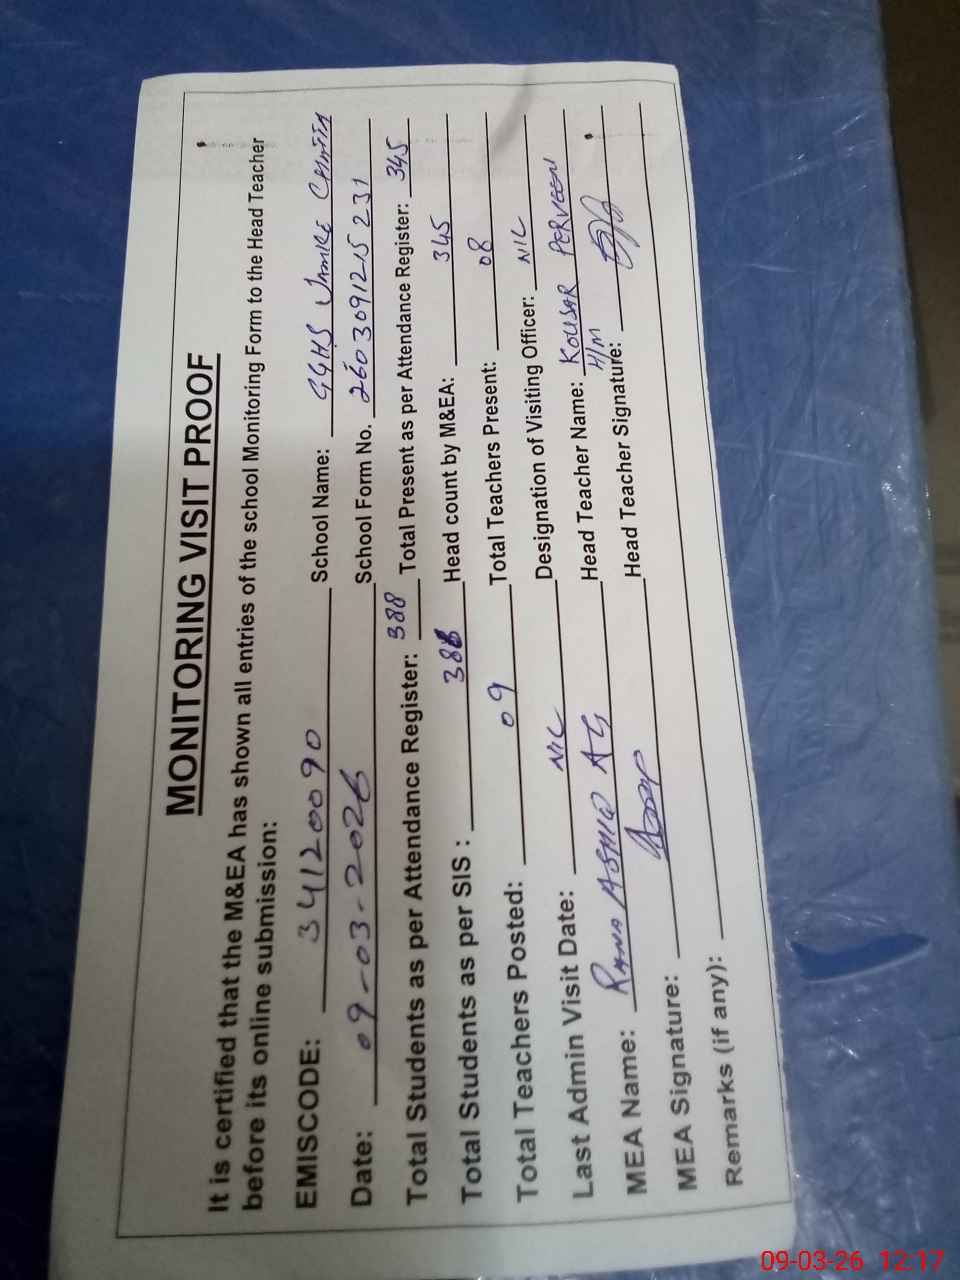 MONITORING VISIT PROOF
It is certified that the M&EA has shown all entries of the school Monitoring Form to the Head Teacher
before its online submission:
EMISCODE: 34120090 School Name: GGHS
Date: 09-03-2026 School Form No. 2603091215231
Total Students as per Attendance Register: 388 Total Present as per Attendance Register: 345
Total Students as per SIS : 388 Head count by M&EA: 345
Total Teachers Posted: 09 Total Teachers Present: 08
Last Admin Visit Date: NIL Designation of Visiting Officer: NIL
MEA Name: RANA Head Teacher Name: KOUSAR PERVEEN
H/M
MEA Signature: Head Teacher Signature:
Remarks (if any):
09-03-26 12:17